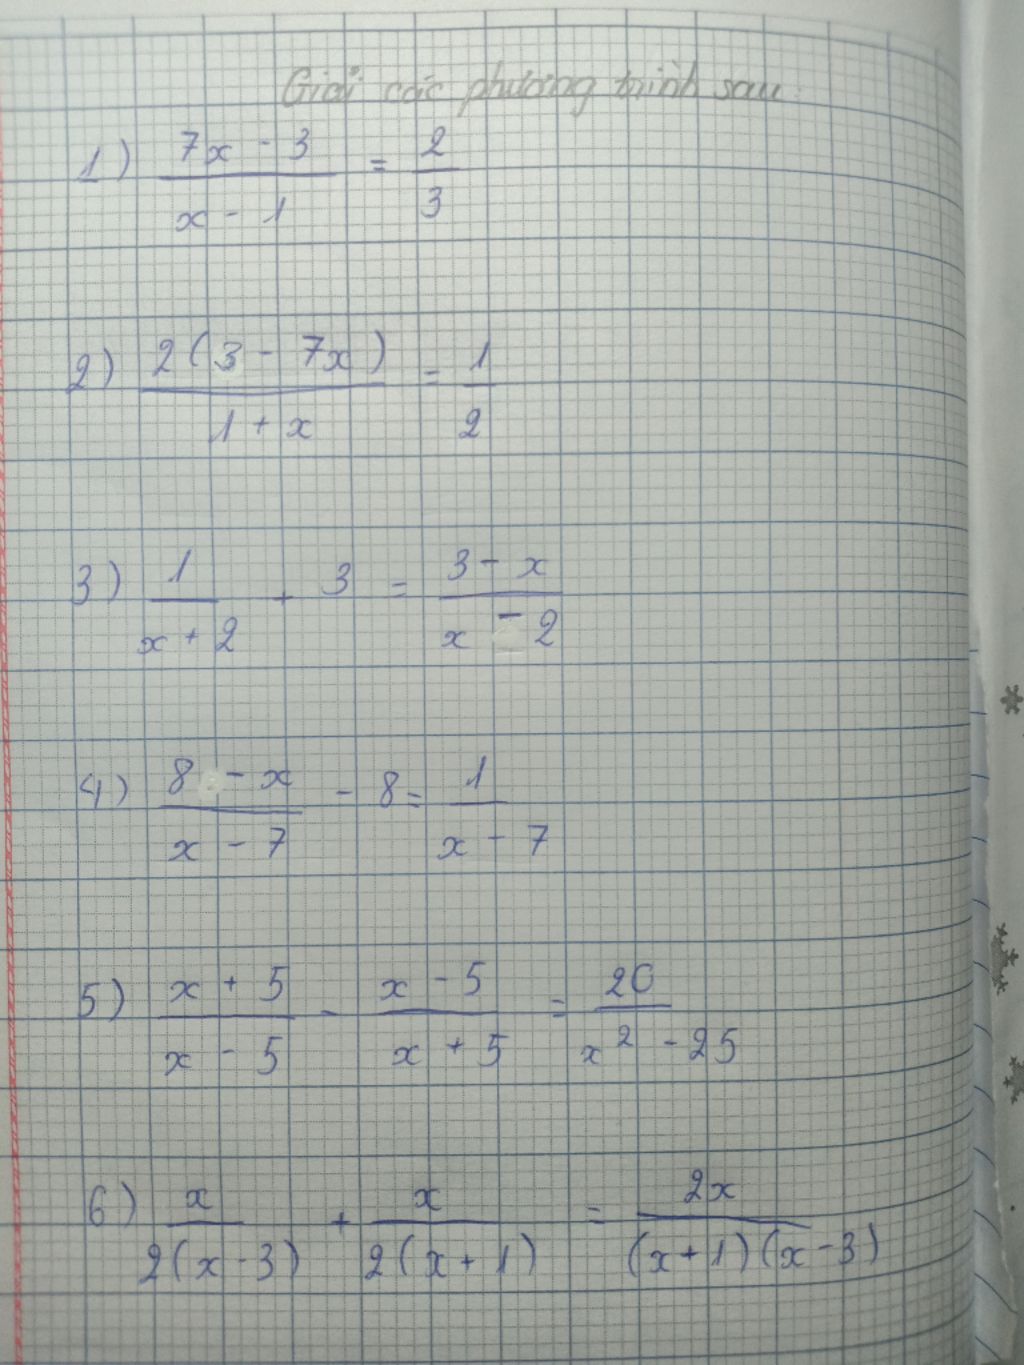 Giải các phương trình sau:
1) \frac{7x - 3}{x - 1} = \frac{2}{3}
2) \frac{2(3 - 7x)}{1 + x} = \frac{1}{2}
3) \frac{1}{x + 2} + 3 = \frac{3 - x}{x - 2}
4) \frac{8 - x}{x - 7} - 8 = \frac{1}{x - 7}
5) \frac{x + 5}{x - 5} - \frac{x - 5}{x + 5} = \frac{20}{x^2 - 25}
6) \frac{x}{2(x - 3)} + \frac{x}{2(x + 1)} = \frac{2x}{(x + 1)(x - 3)}